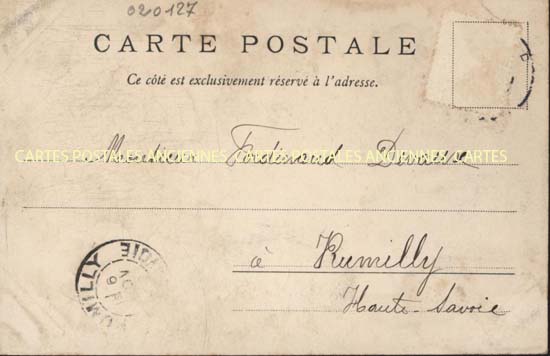 020127
CARTE POSTALE
Ce côté est exclusivement réservé à l'adresse.
Monsieur Ferdinand
CARTES POSTALES ANCIENNES CARTES POSTALES ANCIENNES CARTES
à Rumilly
Haute-Savoie
RUMILLY